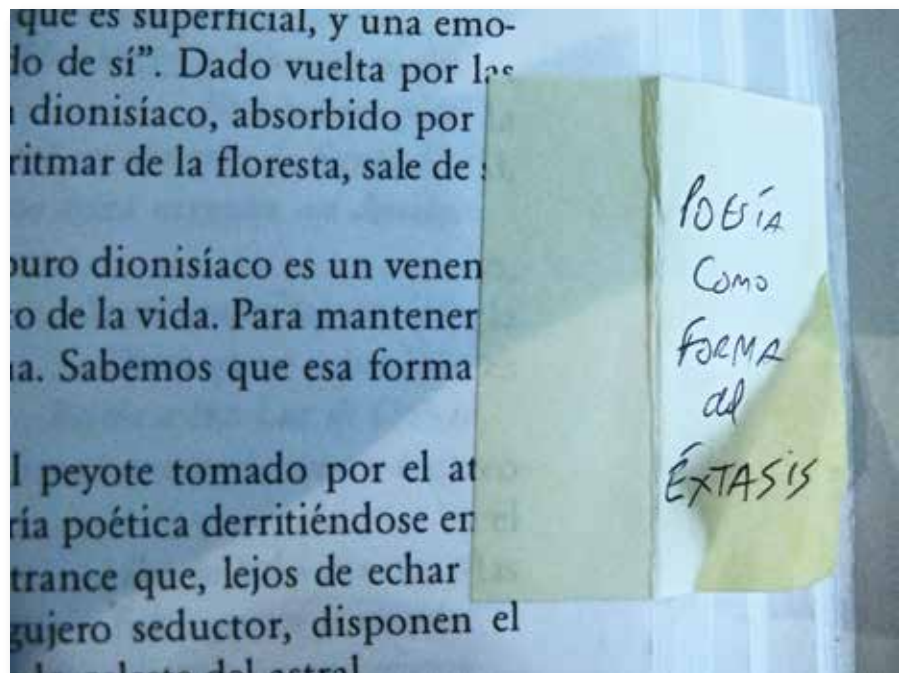 que es superficial, y una emo-
do de sí”. Dado vuelta por las
dionisíaco, absorbido por
ritmar de la floresta, sale de
puro dionisíaco es un venen
o de la vida. Para mantener
a. Sabemos que esa forma
l peyote tomado por el ateo
ría poética derritiéndose en el
trance que, lejos de echar las
gujero seductor, disponen el
del astral
POESÍA
COMO
FORMA
del
ÉXTASIS